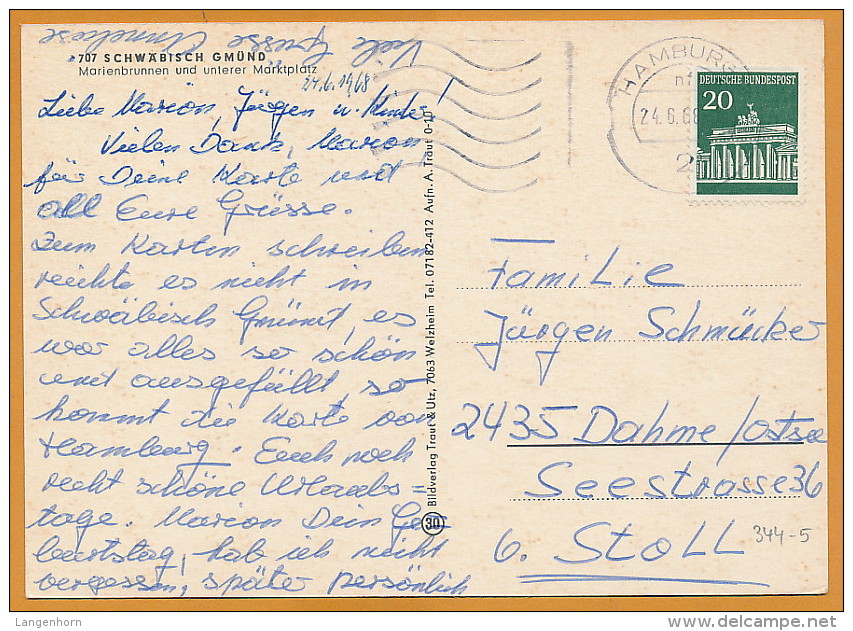 Viele Grüsse, Anneliese
707 SCHWÄBISCH GMÜND
Marienbrunnen und unterer Marktplatz
24.6.1968
Liebe Marion, Jürgen u. Kinder!
Vielen Dank, Marion
für Deine Karte und
all Eure Grüsse.
Zum Karten schreiben
reichte es nicht in
Schwäbisch Gmünd, es
war alles so schön
und ausgefüllt, so
kommt die Karte von
Hamburg. Euch noch
recht schöne Urlaubs=
tage. Marion Dein Ge=
burtstag, hab ich nicht
vergessen, später persönlich
30 Bildverlag Traut & Utz, 7063 Welzheim Tel. 07182-412 Aufn. A. Traut 0-10
HAMBURG
24.6.68
2
DEUTSCHE BUNDESPOST
20
Familie
Jürgen Schmücker
2435 Dahme/Ostsee
Seestrasse 36
b. Stoll
344-5
Langenhorn
delcampe.net